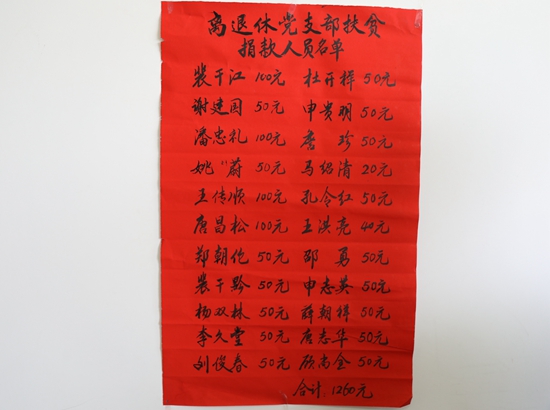 离退休党支部扶贫
捐款人员名单
裴干江 100元 杜开桦 50元
谢建国 50元 申贵明 50元
潘忠礼 100元 唐珍 50元
姚蔚 50元 马绍清 20元
王传顺 100元 孔令红 50元
唐昌松 100元 王洪亮 40元
郑朝伦 50元 邵勇 50元
裴干黔 50元 申志英 50元
杨双林 50元 薛朝祥 50元
李久堂 50元 唐志华 50元
刘俊春 50元 顾尚金 50元
合计：1260元